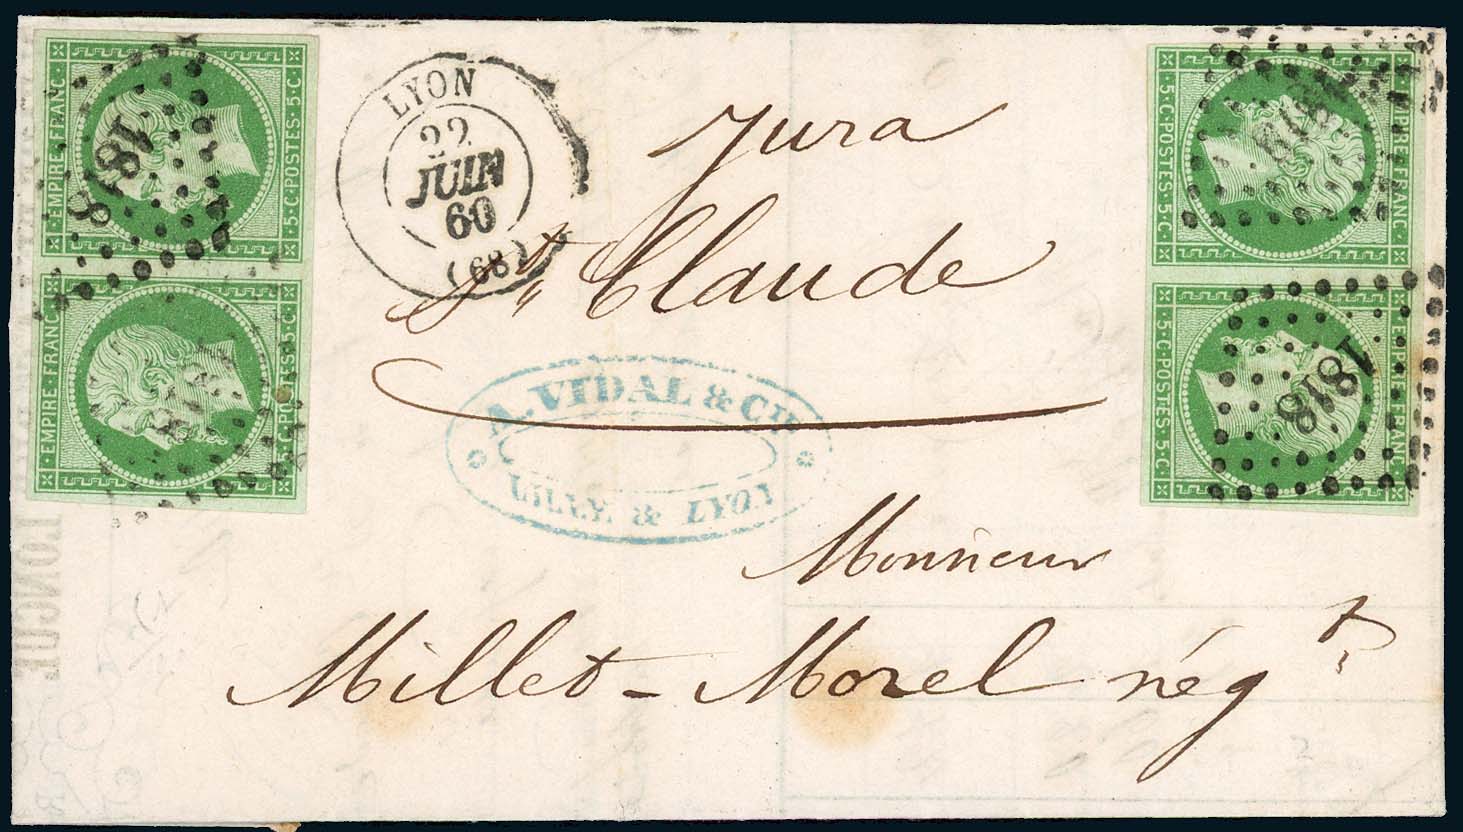 EMPIRE·FRANC·
5·C·POSTES·5·C·
1818
EMPIRE·FRANC·
5·C·POSTES·5·C·
1818
LYON
22
JUIN
60
(68)
EMPIRE·FRANC·
5·C·POSTES·5·C·
1818
EMPIRE·FRANC·
5·C·POSTES·5·C·
1818
Jura
St Claude
A. VIDAL & Cie
LILLE & LYON
Monsieur
Millet-Morel négt